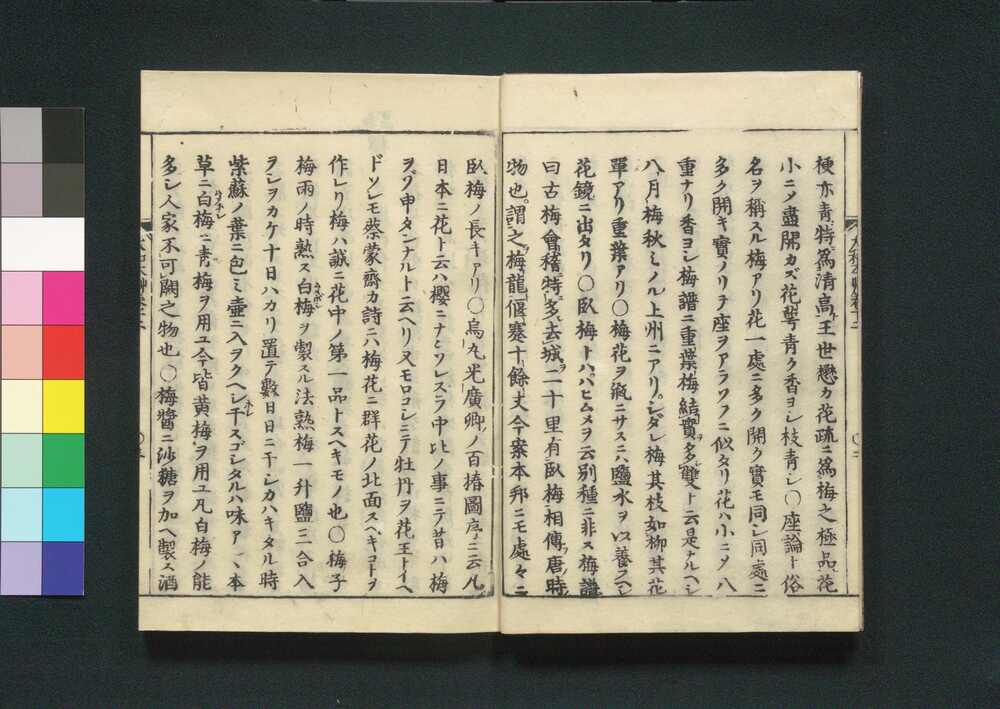 梗亦青特為清高王世懋カ花疏ニ為梅之極品花
小ニ〆盡開カズ花萼青ク香ヨシ枝青シ〇座論ト俗
名ヲ稱スル梅アリ花一處ニ多ク開ク實モ同シ同處ニ
多ク開キ實ノリテ座ヲアラソフニ似タリ花ハ小ニ〆八
重ナリ香ヨシ梅譜ニ重葉梅結實多雙ト云是ナルヘシ
八月梅秋ミノル上州ニアリ〇シダレ梅其枝如柳其花
單アリ重葉アリ〇梅花ヲ瓶ニサスニハ鹽水ヲ以養フヘシ
花鏡ニ出タリ〇臥梅トハハヒムメヲ云別種ニ非ス梅譜
曰古梅會稽特多去城二十里有臥梅相傳唐時
物也謂之梅龍偃蹇十餘丈今案本邦ニモ處々ニ
臥梅ノ長キアリ〇烏丸光廣卿ノ百椿圖序ニ云凡
日本ニ花ト云ハ櫻ニナヒソレスラ中比ノ事ニテ昔ハ梅
ヲゾ申タンナルト云ヘリ又モロコシニテ牡丹ヲ花王トイヘ
ドソレモ蔡蒙齋カ詩ニハ梅花ニ群花ノ北面スヘキコトヲ
作レリ梅ハ誠ニ花中ノ第一品トスヘキモノ也〇梅子
梅雨ノ時熟ス白梅ヲ製スル法熟梅一升鹽三合入
ヲシヲカケ十日ハカリ置テ數日日ニ干シカハキタル時
紫蘇ノ葉ニ包ミ壷ニ入ヲクヘシ干スゴシタルハ味アヽ本
草ニ白梅ニ青梅ヲ用ユ今皆黄梅ヲ用ユ凡白梅ノ能
多シ人家不可闕之物也〇梅醬ニ沙糖ヲ加ヘ製ス酒